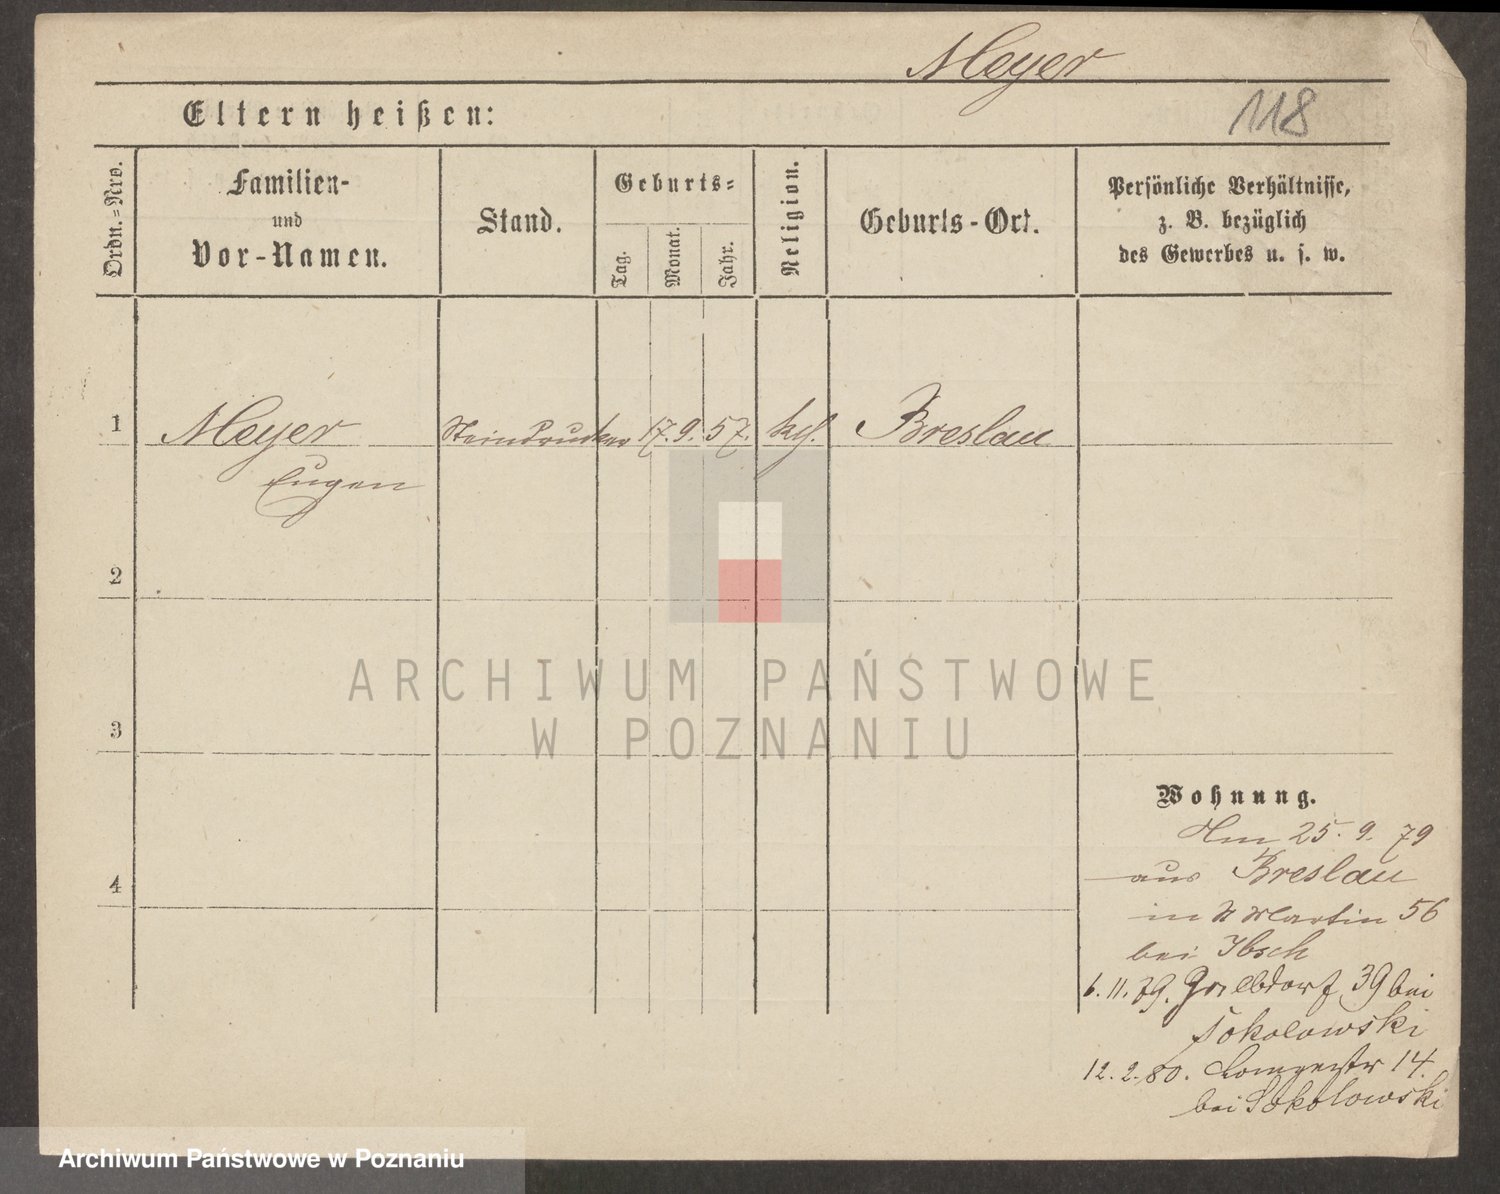 Meyer
118
Eltern heißen:
Ordn.=Nro.
Familien-
und
Vor-Namen.
Stand.
Geburts=
Tag.
Monat.
Jahr.
Religion.
Geburts-Ort.
Persönliche Verhältnisse,
z. B. bezüglich
des Gewerbes u. s. w.
1
Meyer Steindrucker 17. 9. 57. kth. Breslau
Eugen
2
3
4
ARCHIWUM PAŃSTWOWE
W POZNANIU
Wohnung.
Am 25. 9. 79
aus Breslau
in St Martin 56
bei Ibsch
6. 11. 79. 39 bei
Sokolowski
12. 2. 80. Langestr 14.
bei Sokolowski
Archiwum Państwowe w Poznaniu